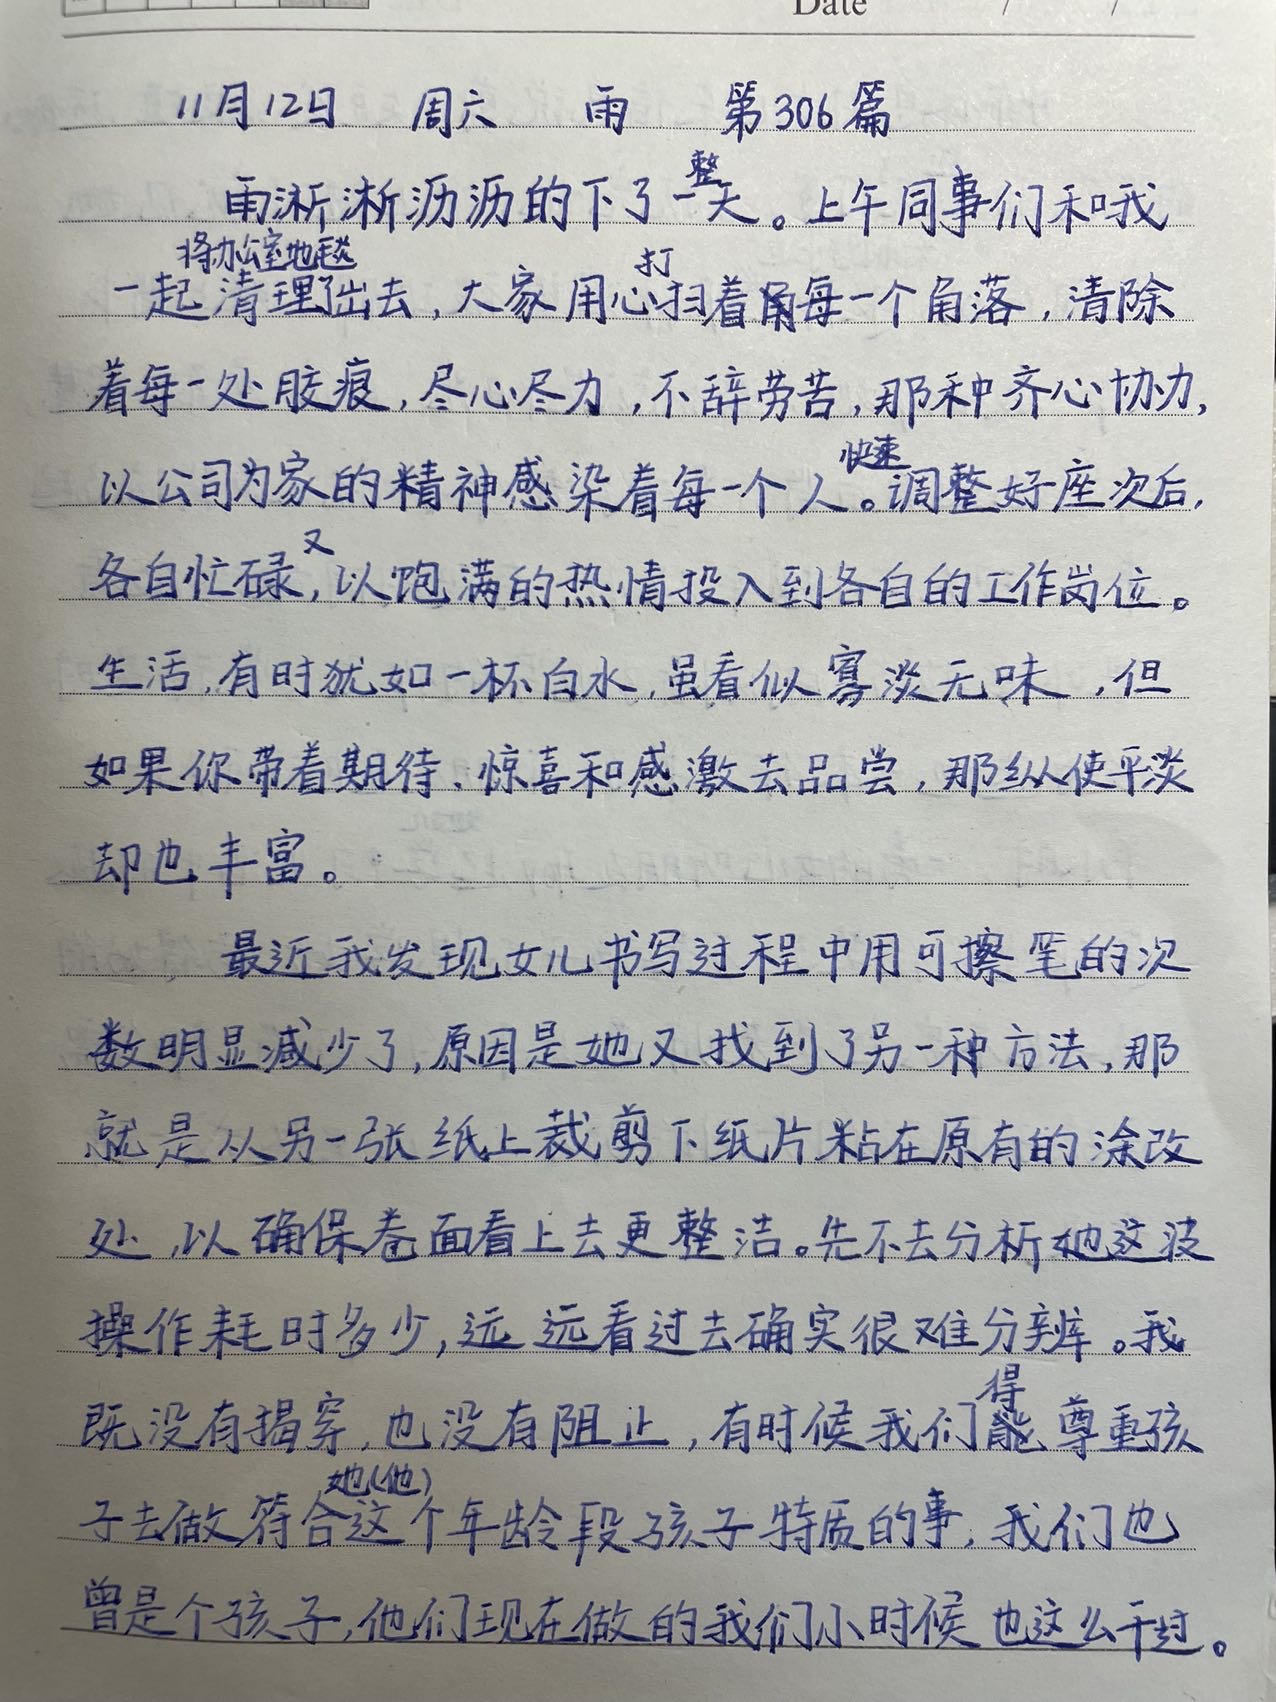 Date / /
11月12日 周六 雨 第306篇
雨淅淅沥沥的下了一整天。上午同事们和我
一起将办公室地毯清理了出去，大家用心打扫着每一个角落，清除
着每一处胶痕，尽心尽力，不辞劳苦，那种齐心协力，
以公司为家的精神感染着每一个人。快速调整好座次后，
各自忙碌，又以饱满的热情投入到各自的工作岗位。
生活，有时犹如一杯白水，虽看似寡淡无味，但
如果你带着期待、惊喜和感激去品尝，那纵使平淡
却也丰富。
最近我发现女儿书写过程中用可擦笔的次
数明显减少了，原因是她又找到了另一种方法，那
就是从另一张纸上裁剪下纸片粘在原有的涂改
处，以确保卷面看上去更整洁。先不去分析她这波
操作耗时多少，远远看过去确实很难分辨。我
既没有揭穿，也没有阻止，有时候我们得尊重孩
子去做符合她(他)这个年龄段孩子特质的事，我们也
曾是个孩子，他们现在做的我们小时候也这么干过。